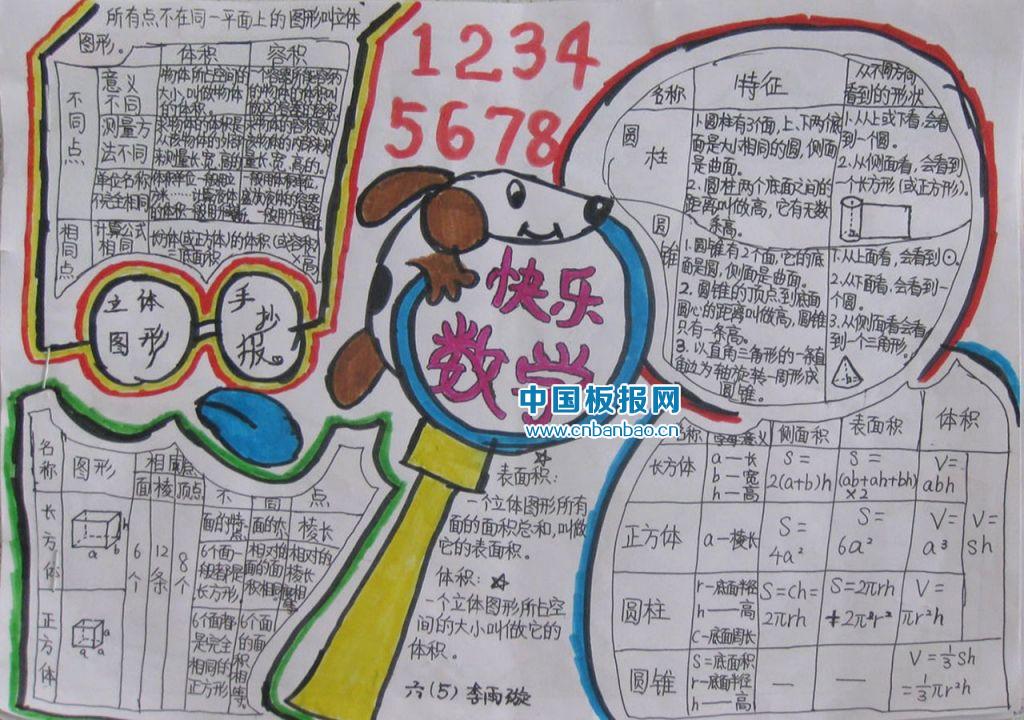 所有点不在同一平面上的图形叫立体
图形。
体积
容积
不同点
意义
不同
物体所占空间的
大小,叫做物体
的体积。
测量方
法不同
单位名称
不完全相同
相同点
计算公式
相同
长方体(或正方体)的体积(或容积)
=底面积×高
立体
图形
手抄报。
1234
5678
快乐
数学
中国板报网
www.cnbanbao.cn
名称
特征
从不同方向
看到的形状
圆柱
1.圆柱有3个面,上、下两个底
面是大小相同的圆,侧面
是曲面。
2.圆柱两个底面之间的
距离叫做高,它有无数
条高。
1.从上或下看,会看
到一个圆。
2.从侧面看,会看到
一个长方形(或正方形)。
圆锥
1.圆锥有2个面,它的底
面是圆,侧面是曲面。
2.圆锥的顶点到底面
圆心的距离叫做高,圆锥
只有一条高。
3.以直角三角形的一条直
角边为轴旋转一周形成
圆锥。
1.从上面看,会看到⊙。
2.从下面看,会看到一
个圆。
3.从侧面看会看
到一个三角形。
h
名称
图形
相同点
面
棱
顶点
不同点
面的特点
面的大小
棱长
长方体
a
b
h
6个
12条
8个
6个面一
般都是
长方形,
相对的
面的面
积相同
相对的
棱长
相等
正方体
a
a
a
6个面都
是完全
相同的
正方形
6个面
的面
积相等
表面积:☆
一个立体图形所有
面的面积总和,叫做
它的表面积。
体积:☆
一个立体图形所占空
间的大小叫做它的
体积。
六(5) 李雨璇
名称
字母意义
侧面积
表面积
体积
长方体
a—长
b—宽
h—高
S=
2(a+b)h
S=
(ab+ah+bh)
×2
V=
abh
V=
Sh
正方体
a—棱长
S=
4a²
S=
6a²
V=
a³
圆柱
r—底面半径
h——高
C—底面周长
S=ch=
2πrh
S=2πrh
+2πr²
V=
πr²h
圆锥
S=底面积
r—底面半径
h——高
—
—
V=⅓Sh
=⅓πr²h